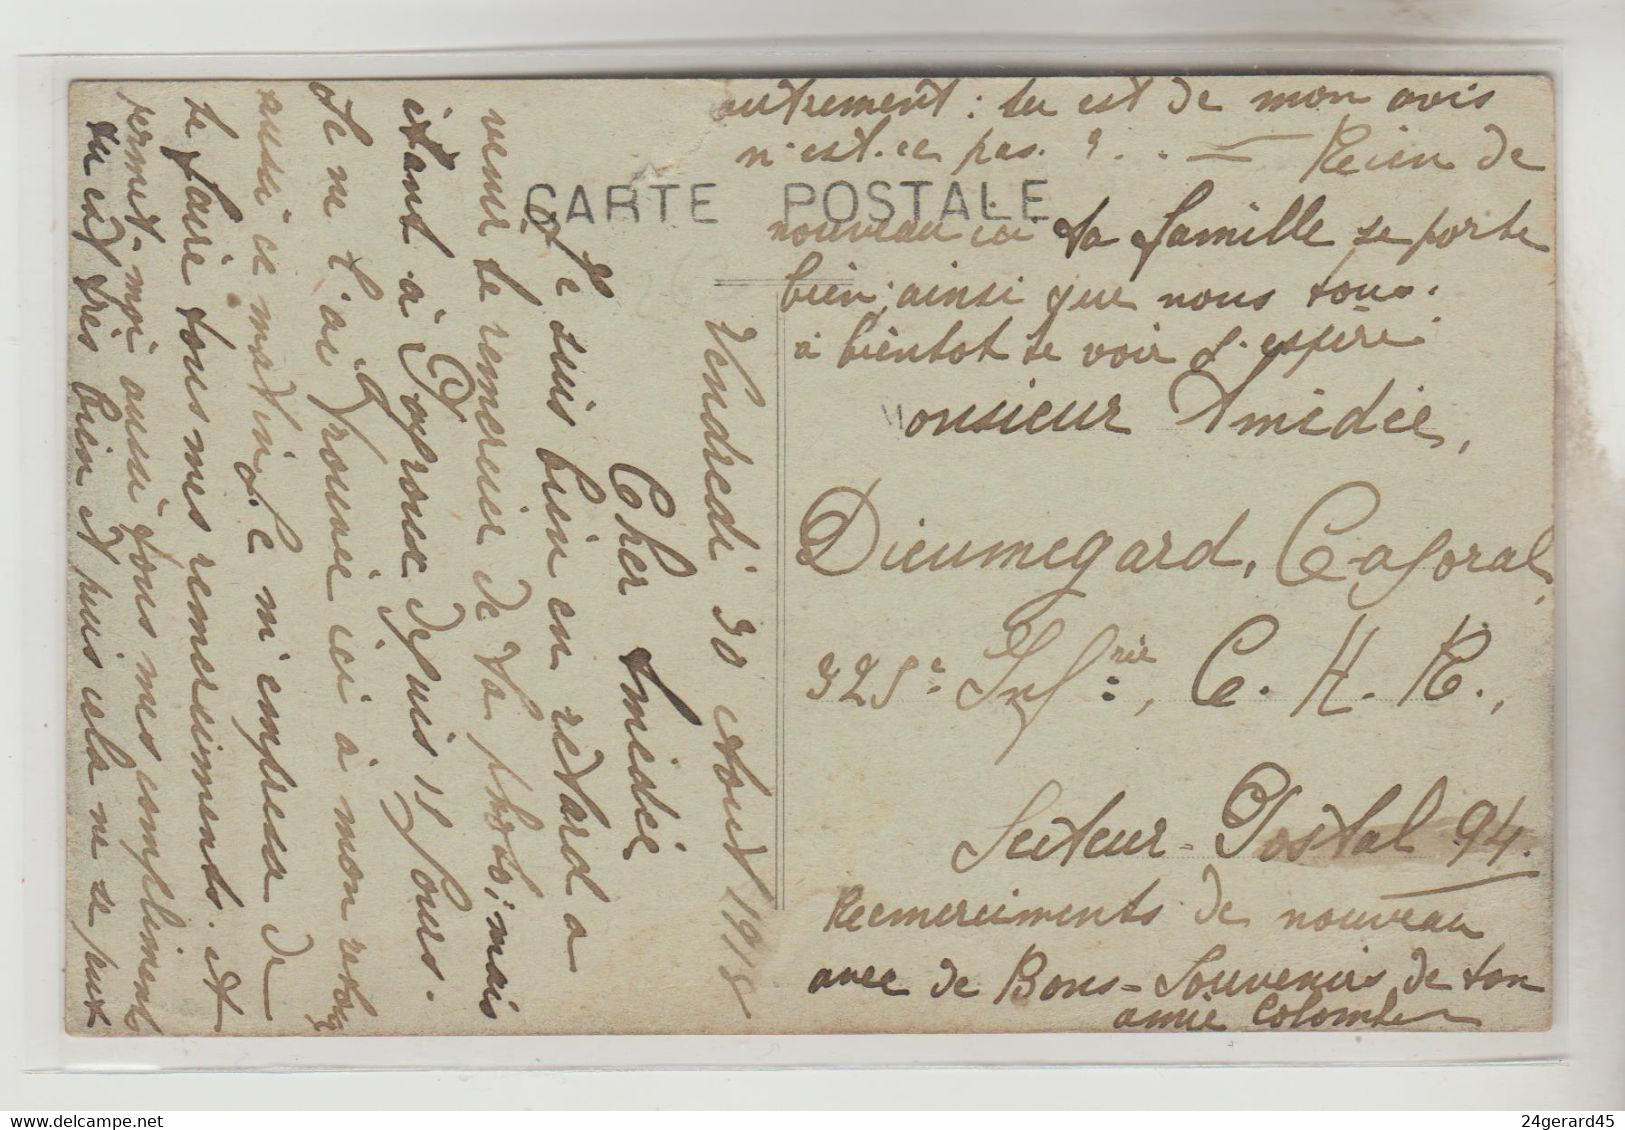 Vendredi 30 Aout 1918
Cher Amédée
Je suis bien en retard a
venir te remercier de ta photo; mais
étant à Joyeuse depuis 15 jours.
Je ne l'ai trouvée ici à mon retour
aussi ce matin. Je m'empresse de
te faire tous mes remerciments. et
permet-moi aussi tous mes compliments
tu est très bien et puis cela ne se peut
autrement : tu est de mon avis
n'est-ce pas. ? . . = Reien de
nouveau ici ta famille se porte
bien; ainsi que nous tous.
à bientot te voir J'espère.
CARTE POSTALE
Monsieur Amédée,
Dieumegard, Caporal,
325e Infrie, C. H. R.,
Secteur-Postal 94.
Reemerciments de nouveau
avec de Bons-Souvenirs de ton
amie Colombe
24gerard45